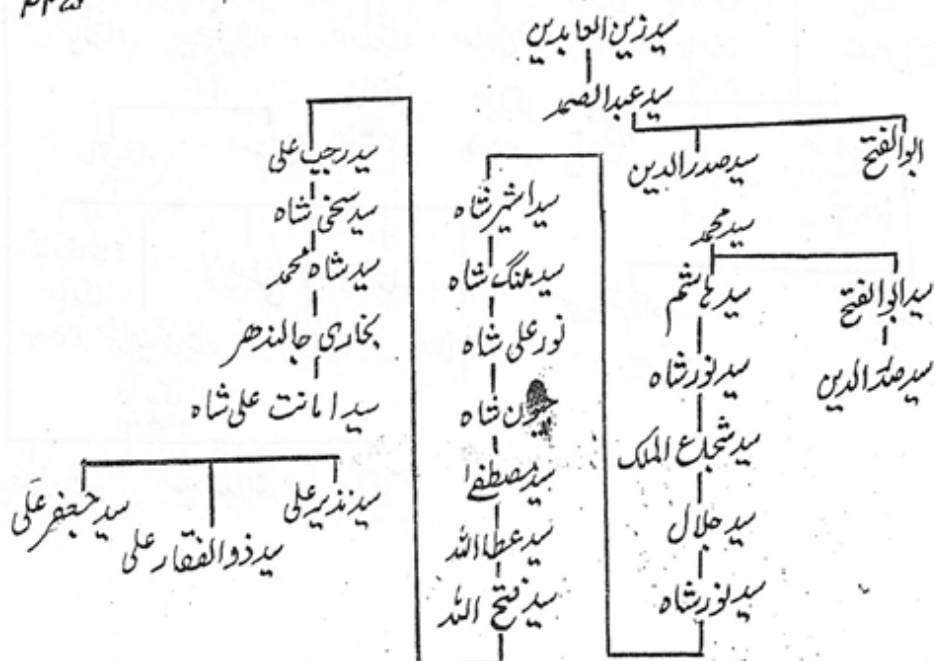 سید زین العابدین
سید عبدالصمد
ابوالفتح
سید صدرالدین
سید محمد
سید ابوالفتح
سید صدرالدین
سید ہاشم
سید نور شاہ
سید شجاع الملک
سید جلال
سید نور شاہ
سید اشیر شاہ
سید ملنگ شاہ
نور علی شاہ
شاہ
سید مصطفے
سید عطا اللہ
سید فتح اللہ
سید رجب علی
سید سخی شاہ
سید شاہ محمد
بخاری جالندھر
سید امانت علی شاہ
سید نذیر علی
سید ذوالفقار علی
سید جعفر علی